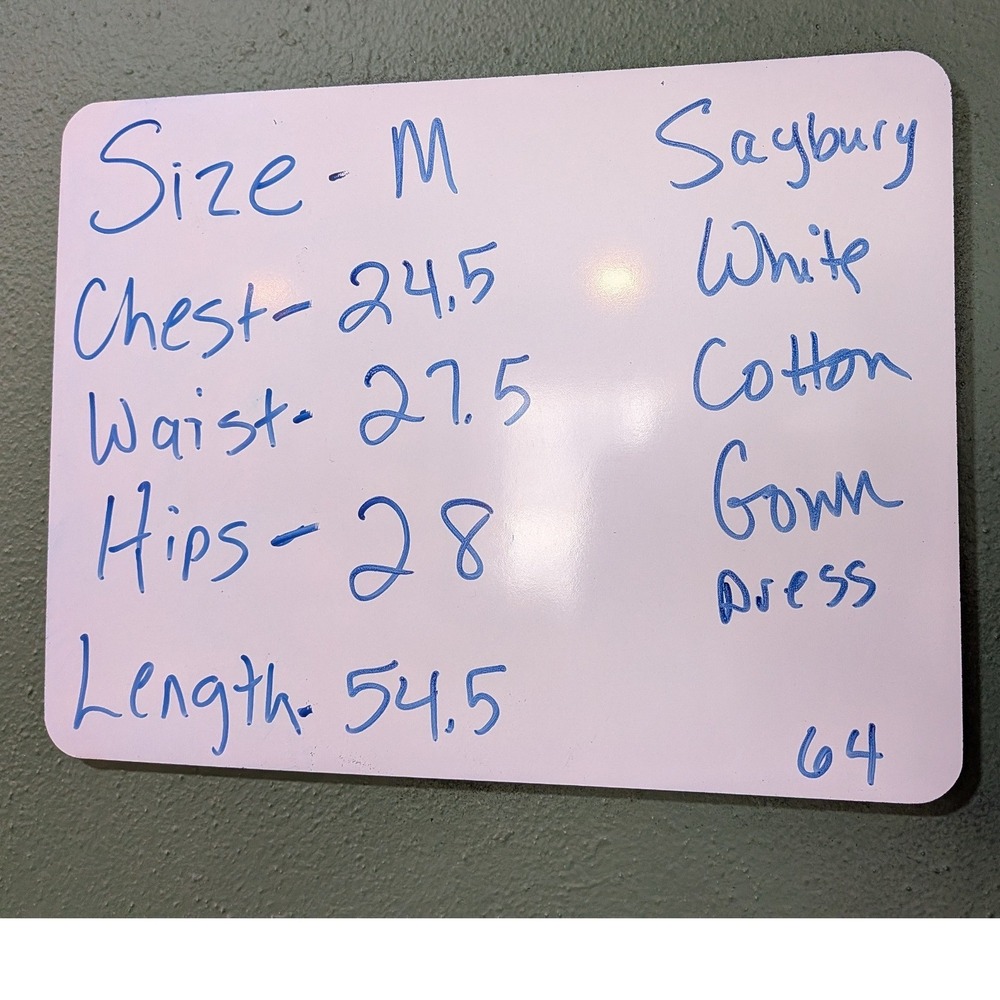 Size - M
Chest - 24.5
Waist - 27.5
Hips - 28
Length - 54.5
Saybury
White
Cotton
Gown
Dress
64